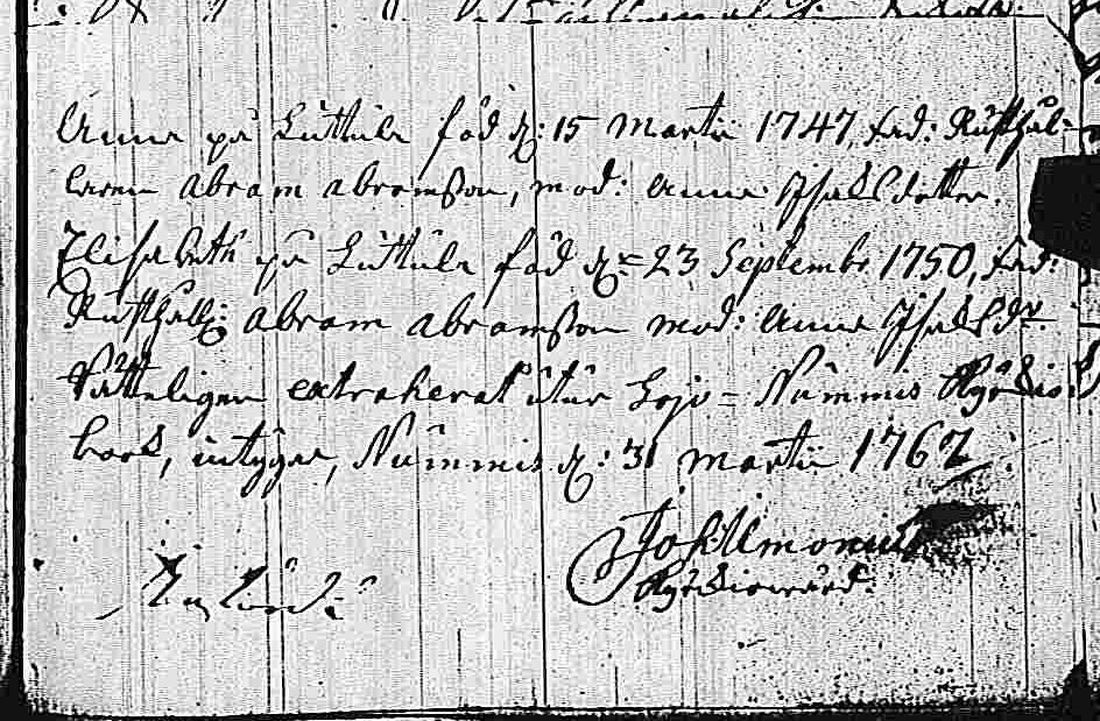 Anna på Luttula född d: 15 Martii 1747, fad: Rusthål-
laren Abram Abramsson, mod: Anna Isacsdotter.
Elisabeth på Luttula född d: 23 Septembr 1750, fad:
Rusthåll: Abram Abramsson mod: Anna Isacsdr.
Rätteligen extraherat utur Lojo - Nummis Kyrkio-
bock, intygar, Nummis d: 31 Martii 1762.
Joh: Umonius
Kyrkioward.